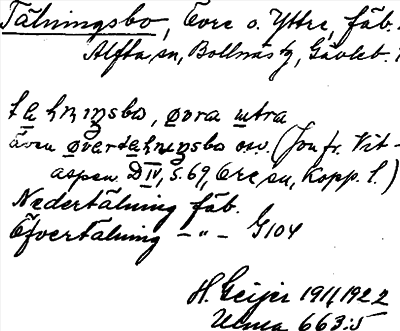 Tälningsbo, Övre o. Yttre, fäb.
Alfta sn, Bollnäs tg, Gävleb. l.
även övertälningsbo osv. (Jmfr. Vit-
aspen DIV, S. 69, Ore sn, Kopp. l.)
Nedertälning fäb.
Öfvertälning — „ — G104
H. Geijer 1911, 1922
Ulma 663:5